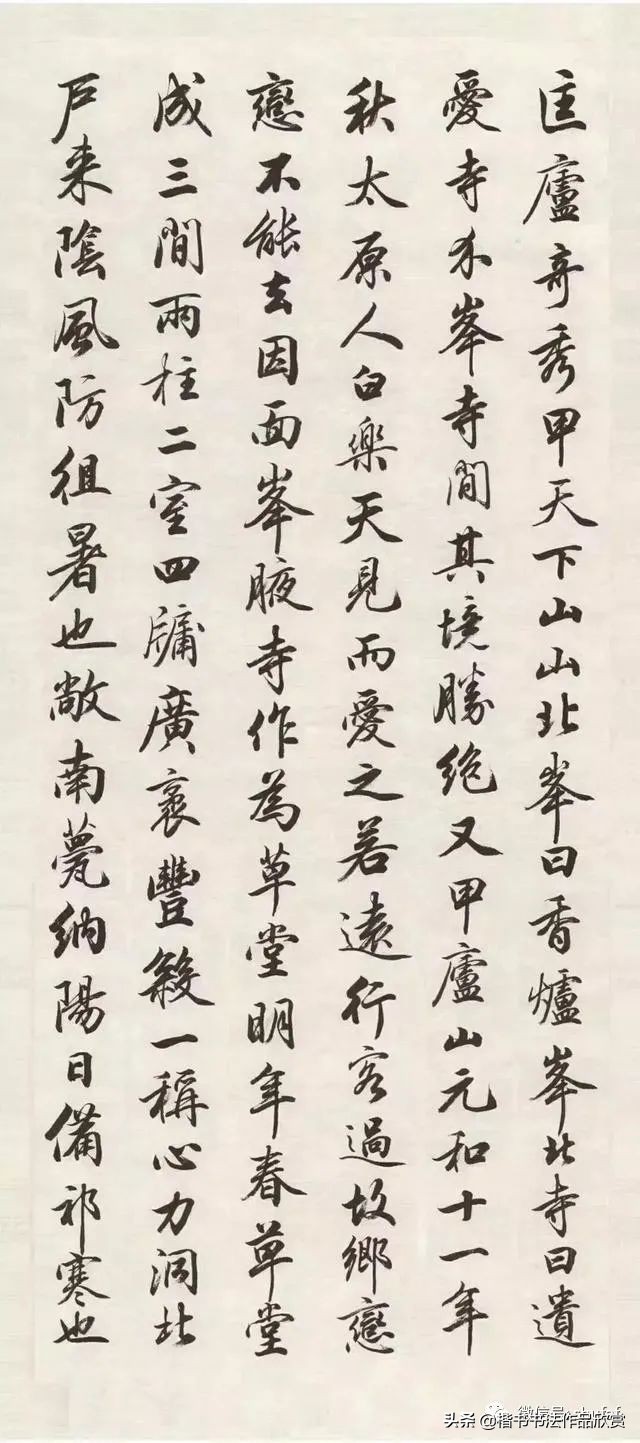 匡廬奇秀甲天下山山北峯曰香爐峯北寺曰遺
愛寺介峯寺間其境勝絶又甲廬山元和十一年
秋太原人白樂天見而愛之若遠行客過故鄉戀
戀不能去因面峯腋寺作為草堂明年春草堂
成三間兩柱二室四牗廣袤豐殺一稱心力洞北
戸来陰風防徂暑也敞南甍納陽日備祁寒也
头条@楷书书法作品欣赏